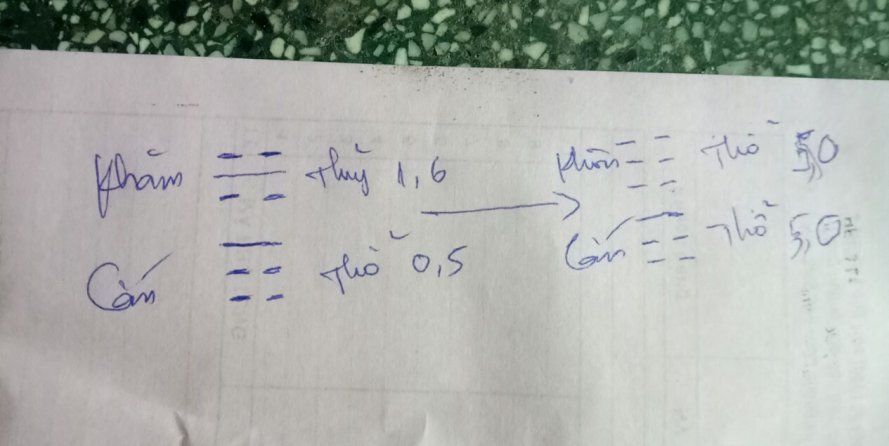 Khảm Thuỷ 1,6
Cấn Thổ 0,5
Khôn Thổ 5,0
Cấn Thổ 5,0